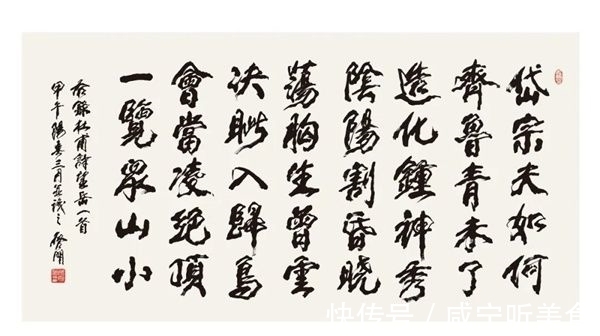 岱宗夫如何
齊魯青未了
造化鍾神秀
陰陽割昏曉
蕩胸生曾雲
决眦入歸鳥
會當凌絕頂
一覽眾山小
錄杜甫詩望岳一首
甲午陽春三月
快传号/咸宁听美食